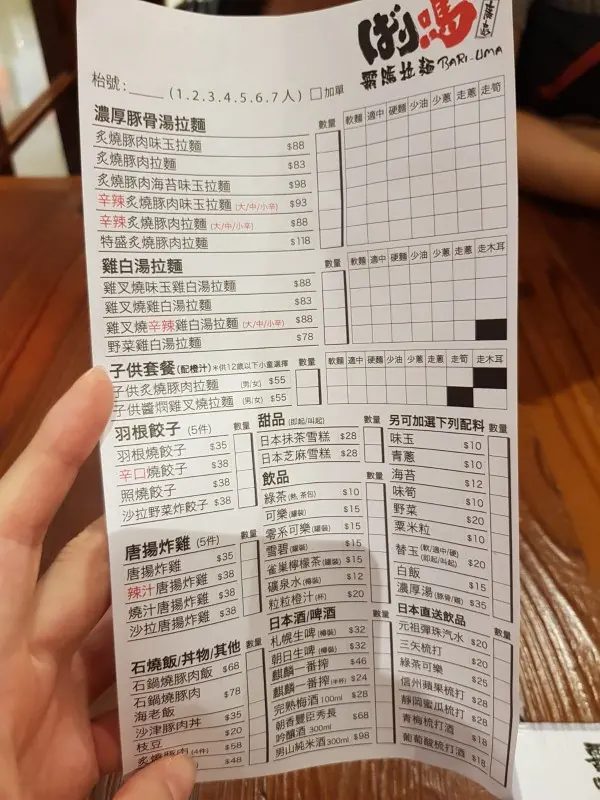 ばり嗎
霸嗎拉麵 BARI-UMA
枱號:_____ (1.2.3.4.5.6.7人) □加單
濃厚豚骨湯拉麵 數量 軟麵 適中 硬麵 少油 少蔥 走蔥 走筍
炙燒豚肉味玉拉麵 $88
炙燒豚肉拉麵 $83
炙燒豚肉海苔味玉拉麵 $98
辛辣炙燒豚肉味玉拉麵 (大/中/小辛) $93
辛辣炙燒豚肉拉麵 (大/中/小辛) $88
特盛炙燒豚肉拉麵 $118
雞白湯拉麵 數量 軟麵 適中 硬麵 少油 少蔥 走蔥 走木耳
雞叉燒味玉雞白湯拉麵 $88
雞叉燒雞白湯拉麵 $83
雞叉燒辛辣雞白湯拉麵 (大/中/小辛) $88
野菜雞白湯拉麵 $78
子供套餐 (配橙汁) *供12歲以下小童選擇 數量 軟麵 適中 硬麵 少油 少蔥 走蔥 走筍 走木耳
子供炙燒豚肉拉麵 (男/女) $55
子供醬燜雞叉燒拉麵 (男/女) $55
羽根餃子 (5件) 數量
羽根燒餃子 $35
辛口燒餃子 $38
照燒餃子 $38
沙拉野菜炸餃子 $38
唐揚炸雞 (5件) 數量
唐揚炸雞 $35
辣汁唐揚炸雞 $38
燒汁唐揚炸雞 $38
沙拉唐揚炸雞 $38
石燒飯/丼物/其他 數量
石鍋燒豚肉飯 $68
石鍋燒豚肉 $78
海老飯
沙津豚肉丼 $35
枝豆 $20
炙燒豚肉 (4件) $58
$48
甜品 (即起/叫起) 數量
日本抹茶雪糕 $28
日本芝麻雪糕 $28
飲品 數量
綠茶 (熱, 茶包) $10
可樂 (罐裝) $15
零系可樂 (罐裝) $15
雪碧 (罐裝) $15
雀巢檸檬茶 (罐裝) $15
礦泉水 (樽裝) $12
粒粒橙汁 (杯) $20
日本酒/啤酒 數量
札幌生啤 (樽裝) $32
朝日生啤 (樽裝) $32
麒麟一番搾 $46
麒麟一番搾 (半杯) $24
完熟梅酒 100ml $28
朝香豐臣秀長 $68
吟釀酒 300ml
男山純米酒 300ml $98
另可加選下列配料 數量
味玉 $10
青蔥 $10
海苔 $12
味筍 $10
野菜 $20
粟米粒 $10
替玉 (軟/適中/硬) (即起/叫起) $20
白飯 $15
濃厚湯 (豚骨/雞) $35
日本直送飲品 數量
元祖彈珠汽水 $20
三矢梳打 $20
綠茶可樂 $25
信州蘋果梳打 $28
靜岡蜜瓜梳打 $28
青梅梳打酒 $18
葡萄酸梳打酒 $18